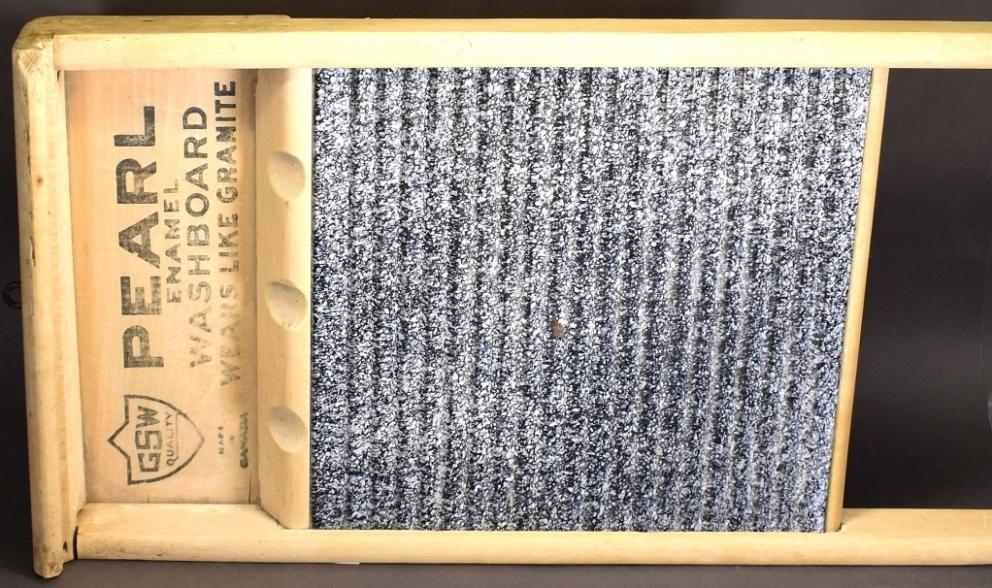 PEARL
ENAMEL
WASHBOARD
WEARS LIKE GRANITE
GSW
QUALITY
MADE
IN
CANADA